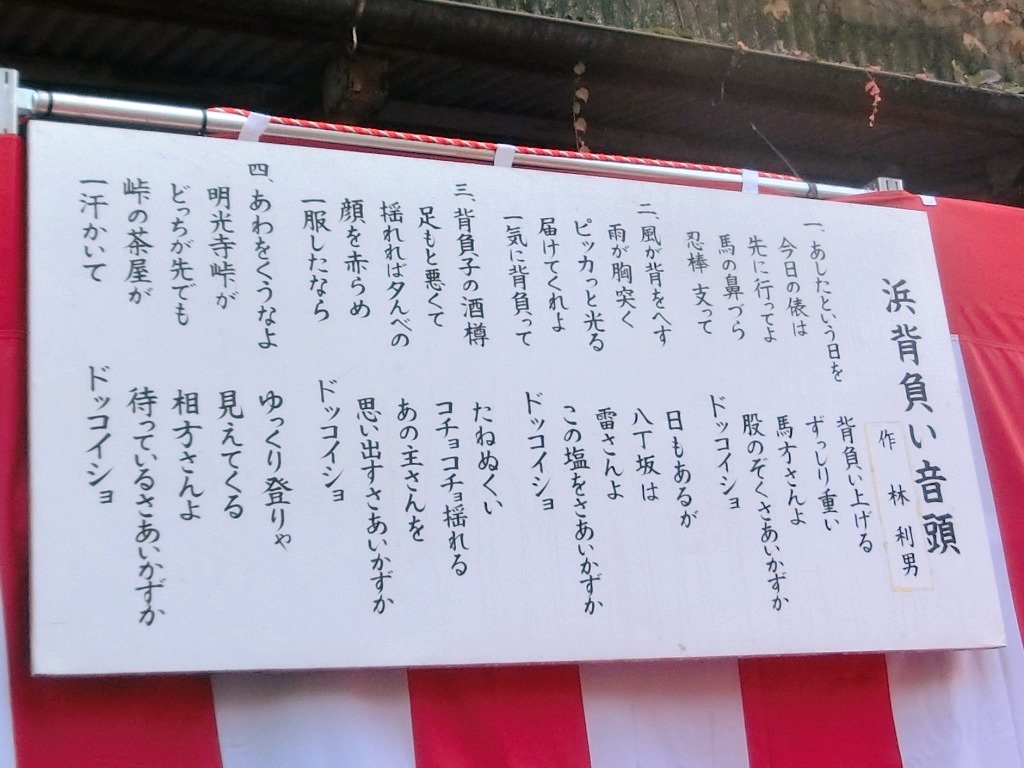 浜背負い音頭
作 林利男
一、あしたという日を
今日の俵は
先に行ってよ
馬の鼻づら
忍棒 支って
背負い上げる
ずっしり重い
馬方さんよ
股のぞくさあいかずか
ドッコイショ
二、風が背をへす
雨が胸突く
ピッカっと光る
届けてくれよ
一気に背負って
日もあるが
八丁坂は
雷さんよ
この塩をさあいかずか
ドッコイショ
三、背負子の酒樽
足もと悪くて
揺れれば夕んべの
顔を赤らめ
一服したなら
たねぬくい
コチョコチョ揺れる
あの主さんを
思い出すさあいかずか
ドッコイショ
四、あわをくうなよ
明光寺峠が
どっちが先でも
峠の茶屋が
一汗かいて
ゆっくり登りゃ
見えてくる
相方さんよ
待っているさあいかずか
ドッコイショ